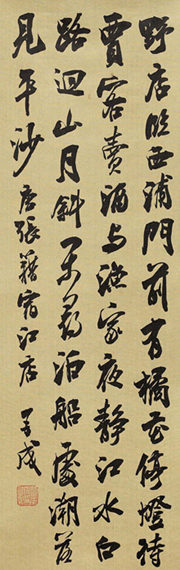 野店臨西浦門前有橘花停燈待
賈客賣酒與漁家夜靜江水白
路迴山月斜閒尋泊船處潮落
見平沙 唐張籍宿江店